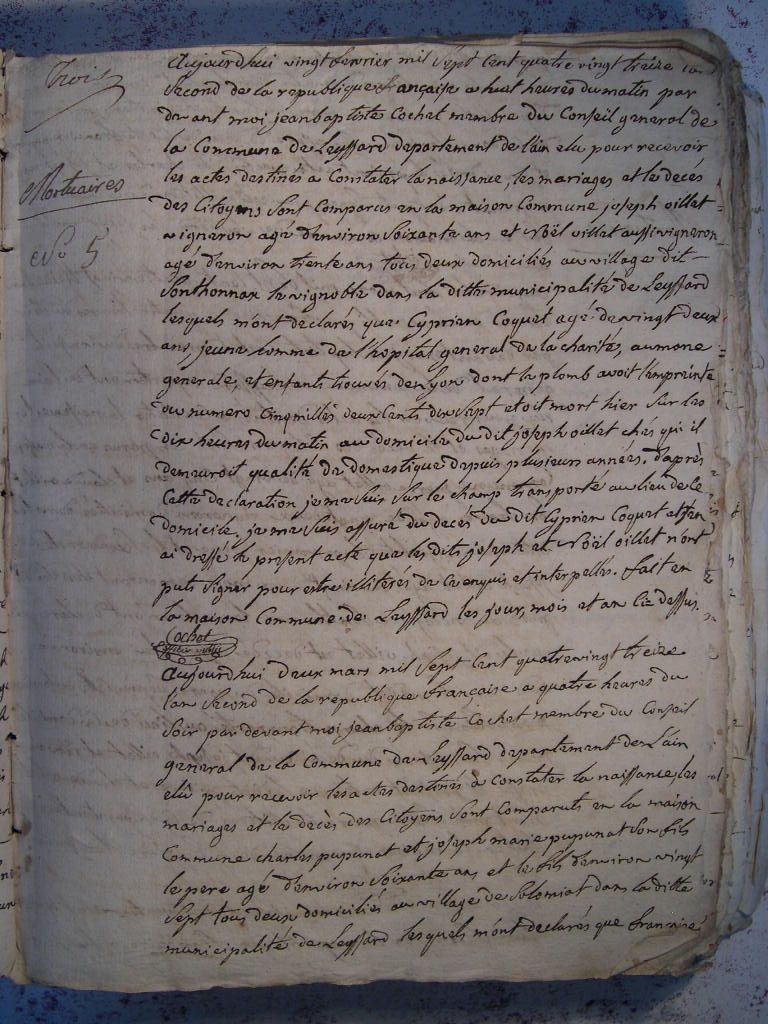 Trois
Mortuaires
No 5
aujourdhui vingt fevrier mil sept cent quatre vingt treize
second de la republique française a huit heures du matin par
devant moi jean baptiste Cochet membre du Conseil general de
la Commune de Leyssard departement de l'ain elu pour recevoir
les actes destinés a Constater la naissance, les mariages et le decés
des Citoyens sont comparus en la maison Commune joseph oillet
vigneron agé d'environ soixante ans et Noël oillet aussi vigneron
agé d'environ trente ans tous deux domiciliés au village dit
Sonthonnax le vignoble dans la ditte municipalité de Leyssard
lesquels m'ont declarés que Cyprien Coquet agé de vingt deux
ans, jeune homme de l'hopital general de la charité, aumone
generale, et enfants trouvés de Lyon dont le plomb avoit l'empreinte
du numero cinq milles deux cents dix sept etoit mort hier sur les
dix heures du matin au domicile du dit joseph oillet chés qui il
demeuroit qualité de domestique depuis plusieurs années. d'après
Cette declaration je me suis sur le champ transporté au lieu de Ce
domicile, je me suis assuré du decés du dit Cyprien Coquet et j'en
ai dressé le present acte que les dits joseph et Noël oillet n'ont
puts signer pour estre illitérés de Ce enquis et interpellés. fait en
la maison Commune de Leyssard les jour, mois et an Ci-dessus.
Cochet
officier public
aujourdhui deux mars mil sept cent quatrevingt treize
l'an second de la republique française a quatre heures du
soir par devant moi jean baptiste Cochet membre du Conseil
general de la Commune de Leyssard departement de Lain
elû pour recevoir les actes destinés a constater la naissance, les
mariages et le decès des Citoyens sont Comparuts en la maison
Commune charles pupunat et joseph marie pupunat son fils
le pere agé d'environ soixante ans et le fils d'environ vingt
sept tous deux domiciliés au village de Solomiat dans la ditte
municipalité de Leyssard lesquels m'ont declarés que francoise